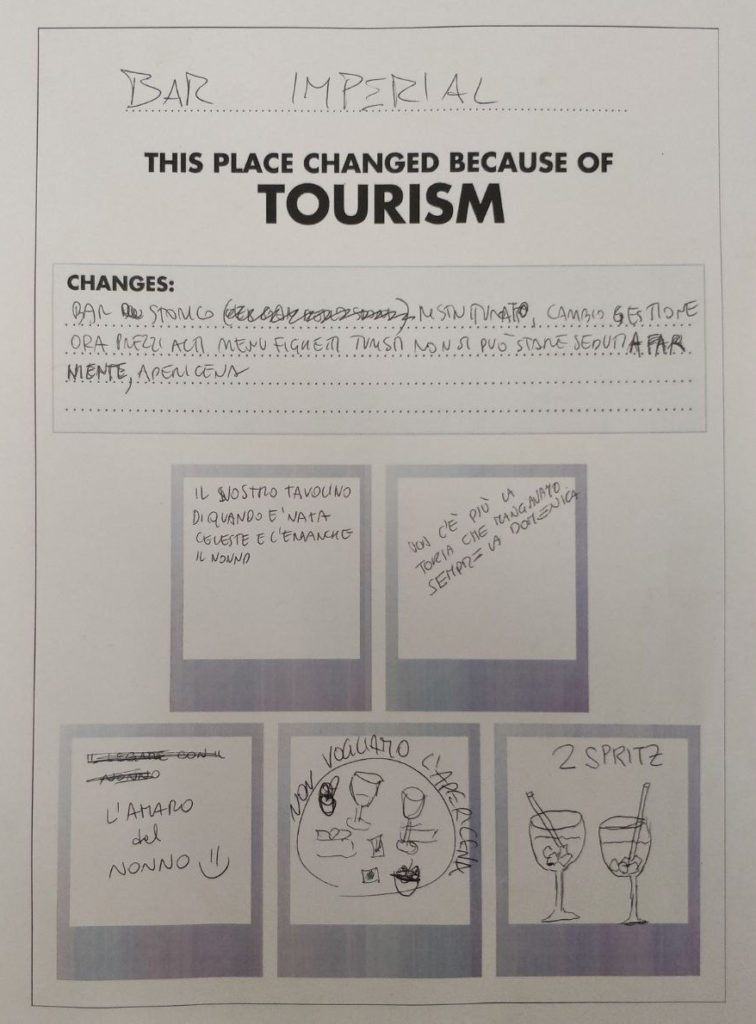 BAR IMPERIAL
THIS PLACE CHANGED BECAUSE OF
TOURISM
CHANGES:
BAR STORICO RISTRUTTURATO, CAMBIO GESTIONE
ORA PREZZI ALTI MENU FIGHETTI TURISTI NON SI PUÒ STARE SEDUTI A FAR
NIENTE, APERICENA
IL NOSTRO TAVOLINO
DI QUANDO E' NATA
CELESTE E C'ERA ANCHE
IL NONNO
NON C'È PIÙ LA
TORTA CHE MANGIAVAMO
SEMPRE LA DOMENICA
IL LEGAME CON IL
NONNO
L'AMARO
del
NONNO
NON VOGLIAMO L'APERICENA
2 SPRITZ